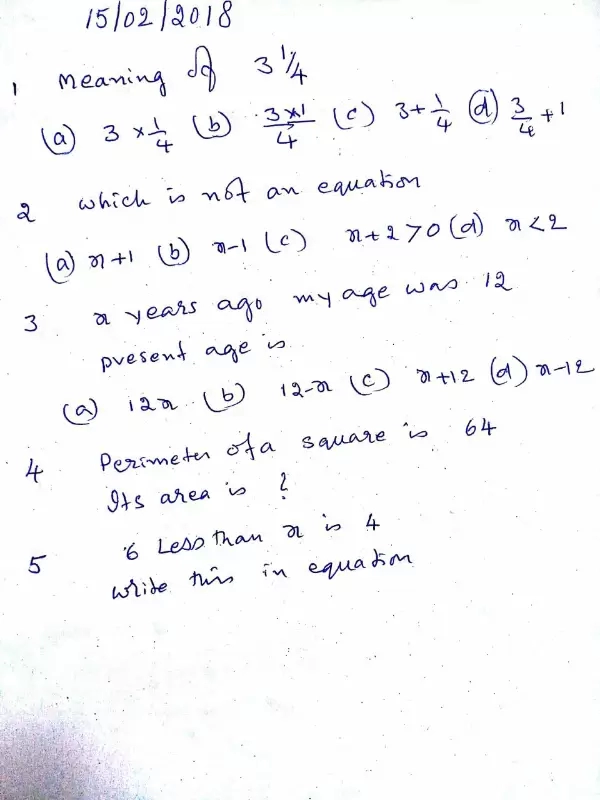 15/02/2018
1 Meaning of 3 1/4
(a) 3 × 1/4 (b) 3×1/4 (c) 3 + 1/4 (d) 3/4 + 1
2 which is not an equation
(a) x+1 (b) x-1 (c) x+2>0 (d) x<2
3 x years ago my age was 12
present age is
(a) 12x (b) 12-x (c) x+12 (d) x-12
4 Perimeter of a square is 64
Its area is ?
5 6 Less than x is 4
write this in equation